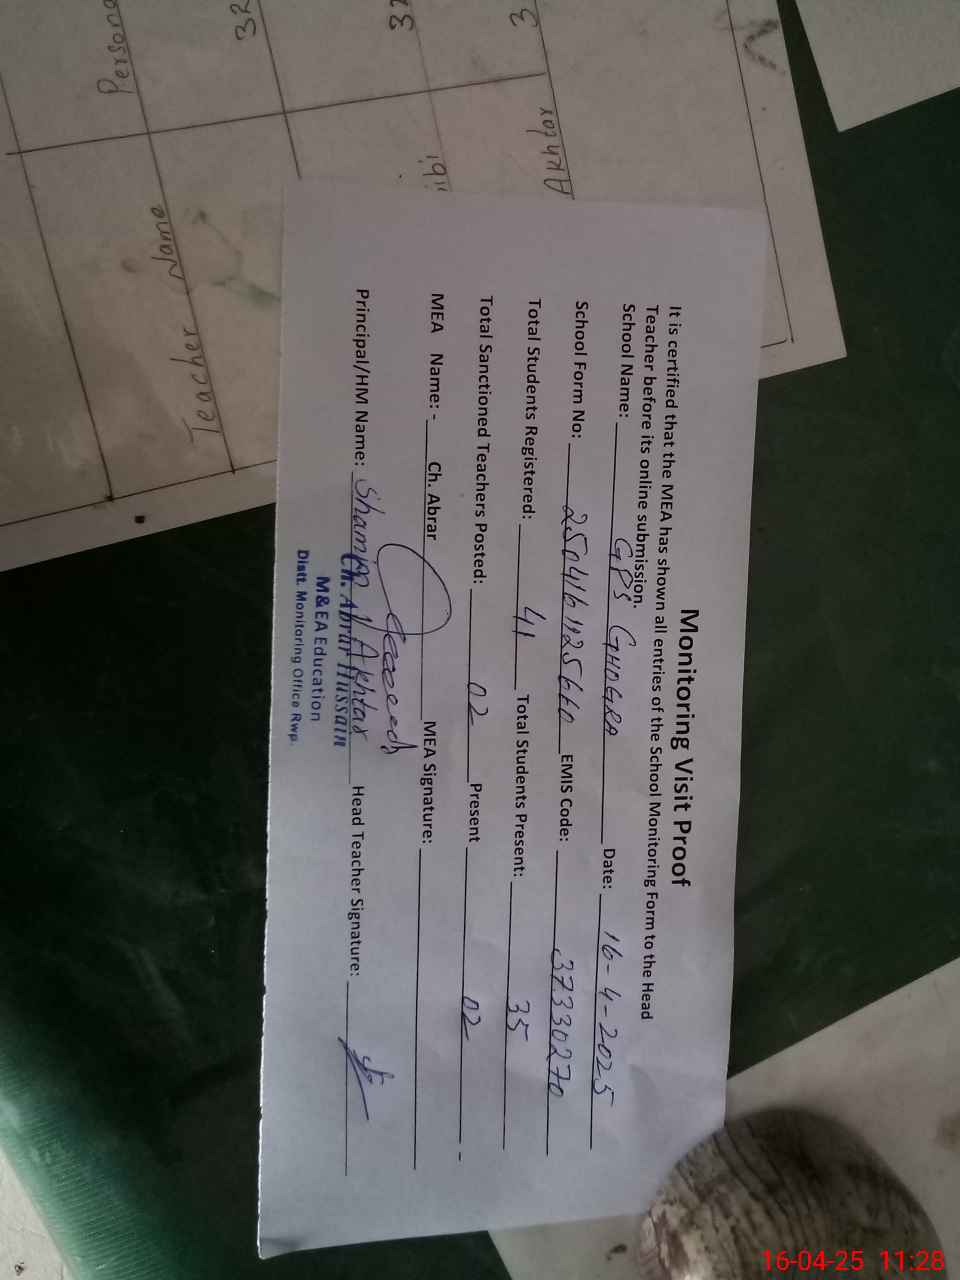 Monitoring Visit Proof
It is certified that the MEA has shown all entries of the School Monitoring Form to the Head
Teacher before its online submission.
School Name: GPS GHOGRA Date: 16-4-2025
School Form No: 2504161125660 EMIS Code: 37330270
Total Students Registered: 41 Total Students Present: 35
Total Sanctioned Teachers Posted: 02 Present 02
MEA Name: - Ch. Abrar MEA Signature:
Principal/HM Name: Shamim Akhtar Head Teacher Signature:
Ch. Abrar Hussain
M&EA Education
Distt. Monitoring Office Rwp.
Teacher Name
Person
Akhtar
ibi
32
32
3
16-04-25 11:28